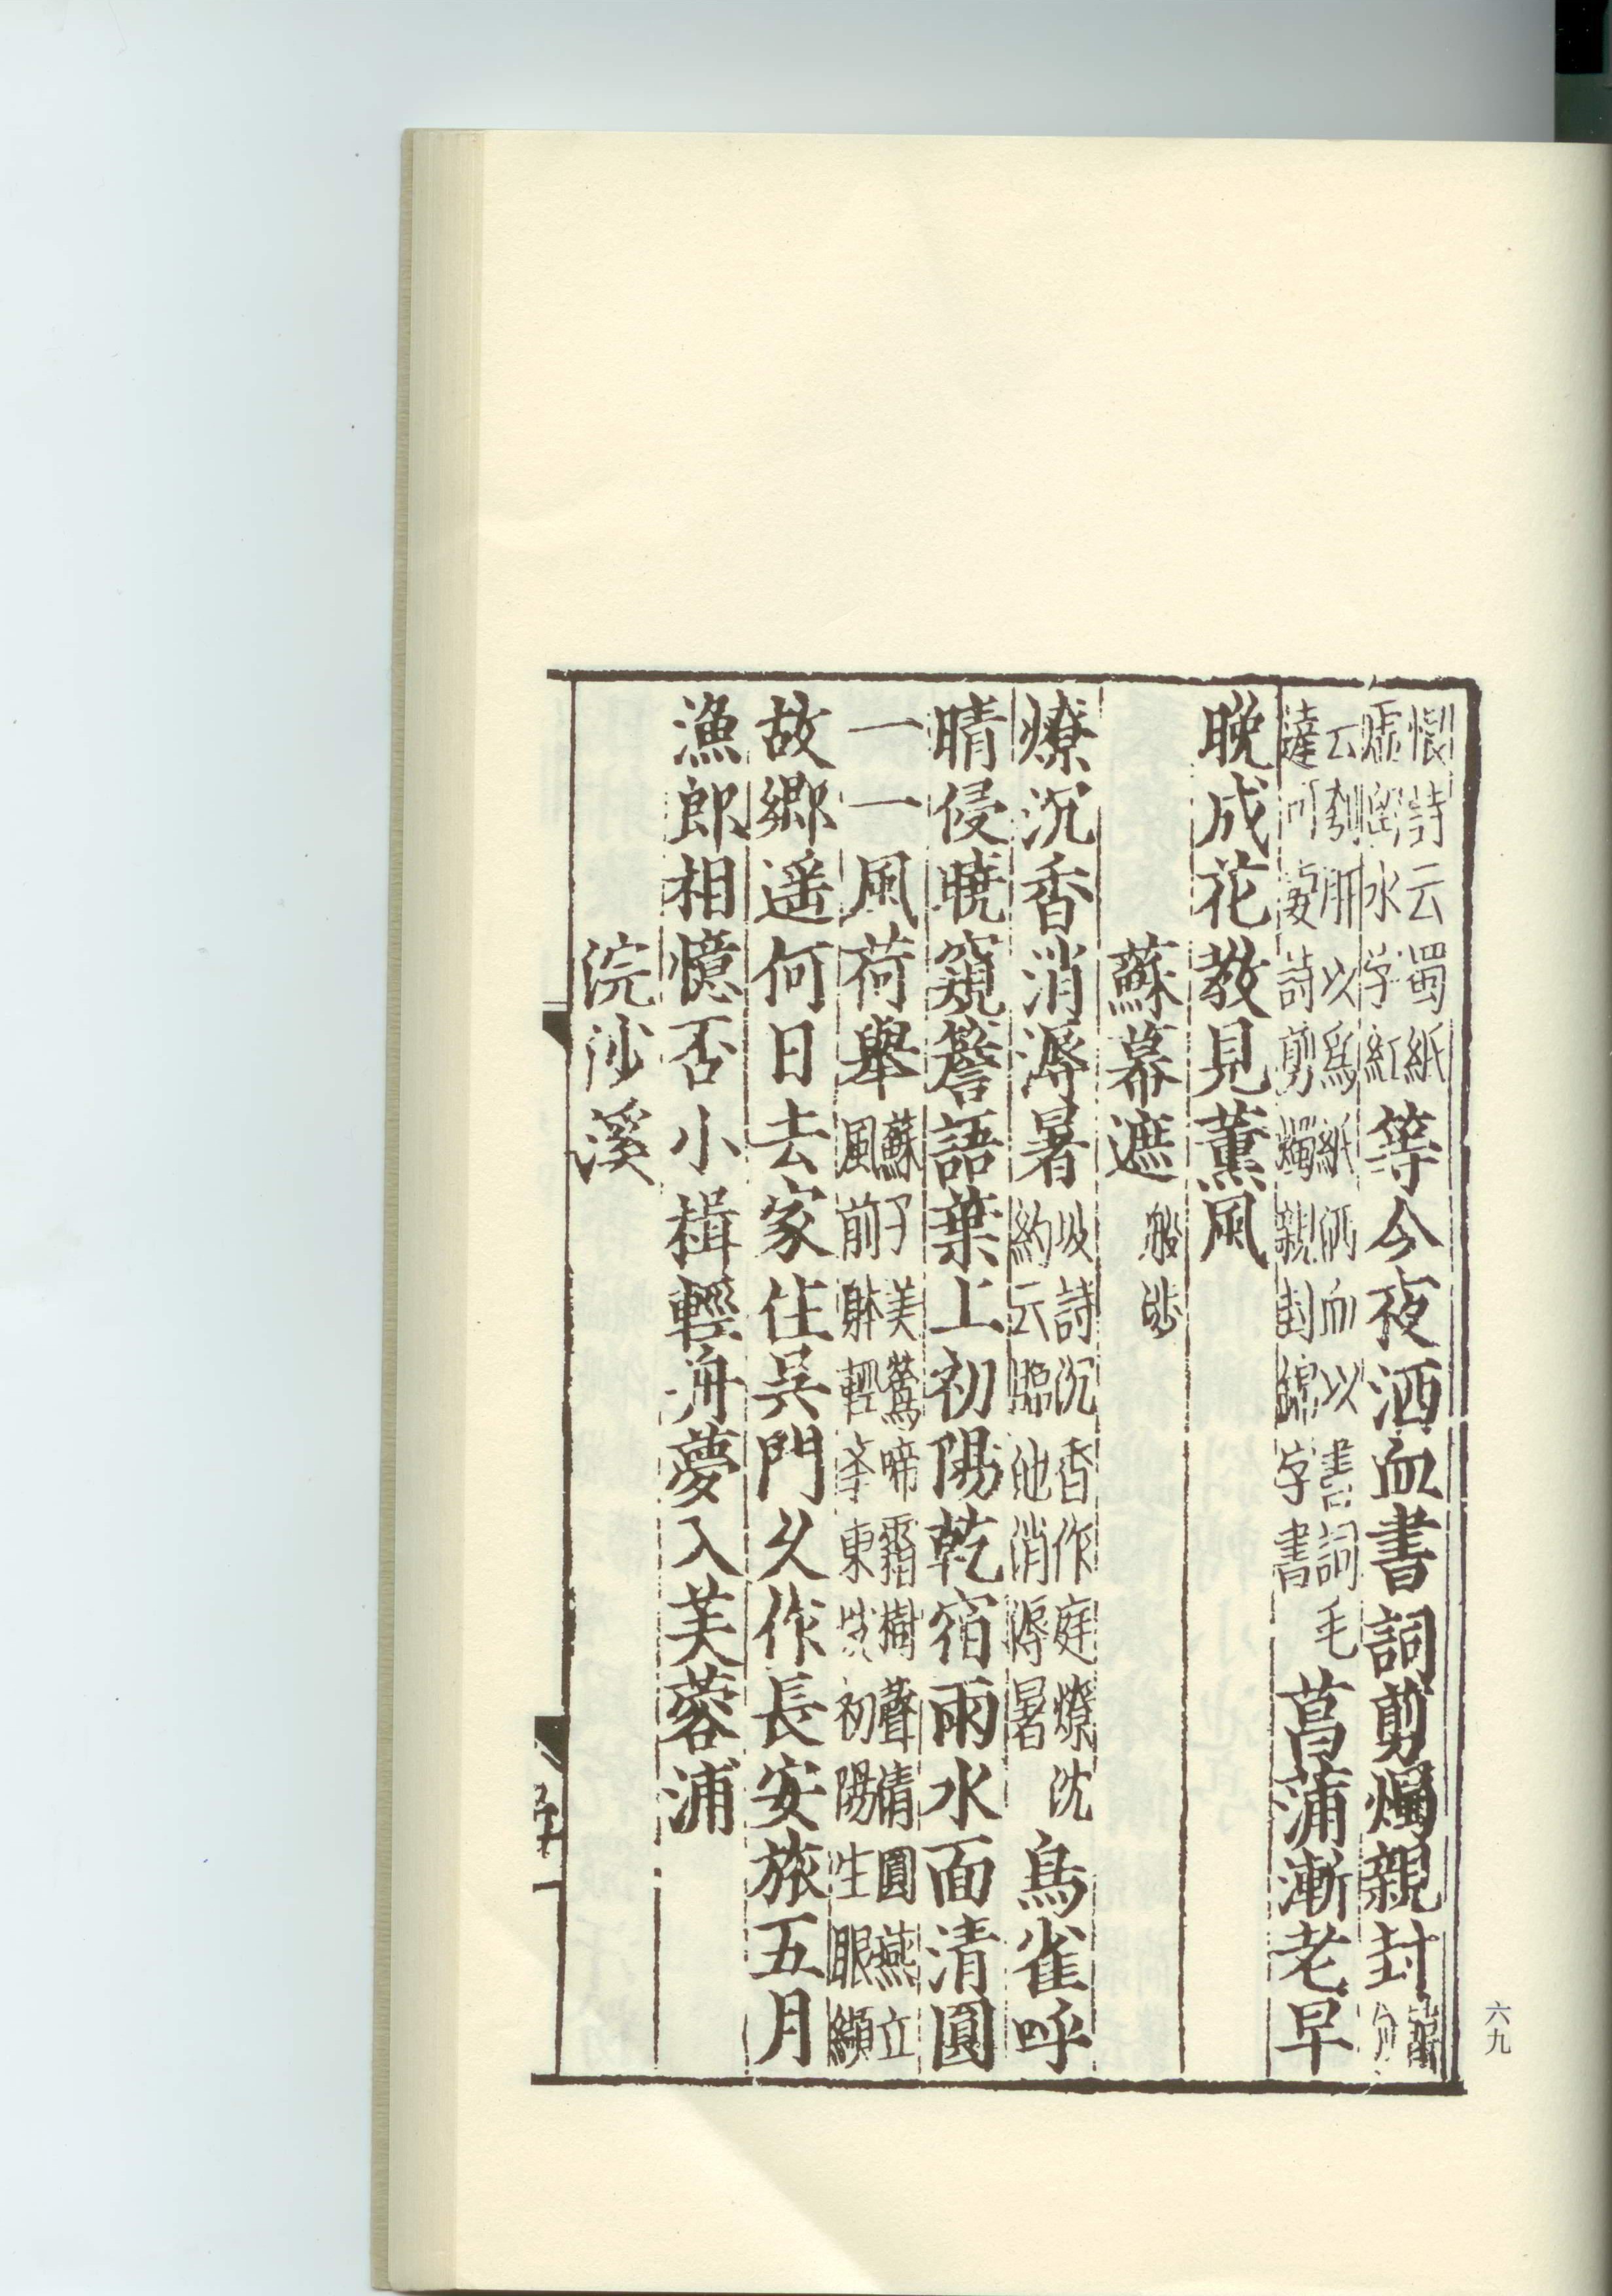 恨詩云蜀紙
虛留水字紅等今夜洒血書詞剪燭親封
云刳肝以爲紙洒血以書詞毛
達可妻詩剪燭親封錦字書菖蒲漸老早
晚成花教見薰風
蘇幕遮般涉
燎沉香消溽暑坡詩沉香作庭燎沈
約云臨池消溽暑鳥雀呼
晴侵曉窺簷語葉上初陽乾宿雨水面清圓
一一風荷舉蘇子美鶯啼霜樹聲清圓燕立
風前躰輕東初陽生眼纈
故郷遥何日去家住吴門乆作長安旅五月
漁郎相憶否小楫輕舟夢入芙蓉浦
浣沙溪
六九